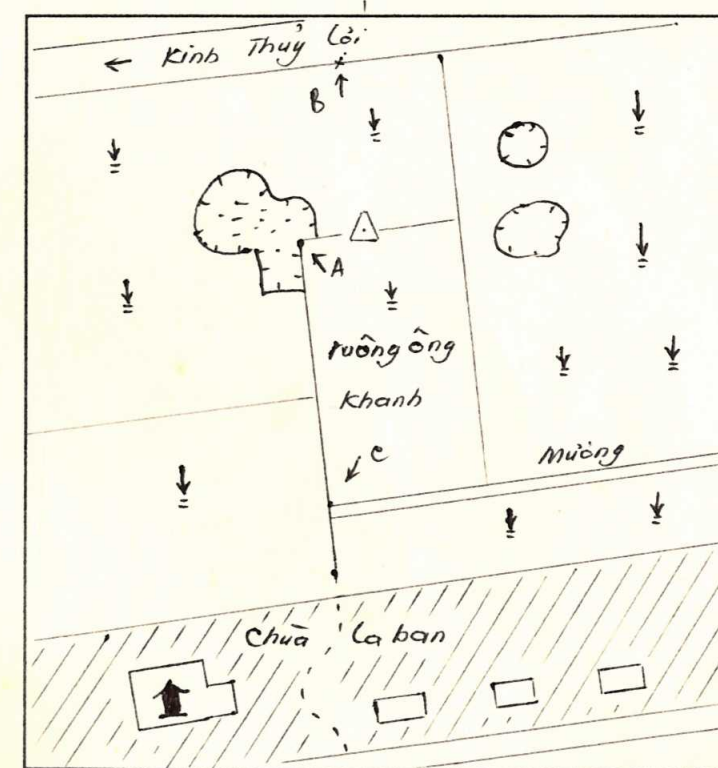 ← Kinh Thuỷ Lồi
B
A
ruông ông
Khanh
C
Mương
Chuà La ban